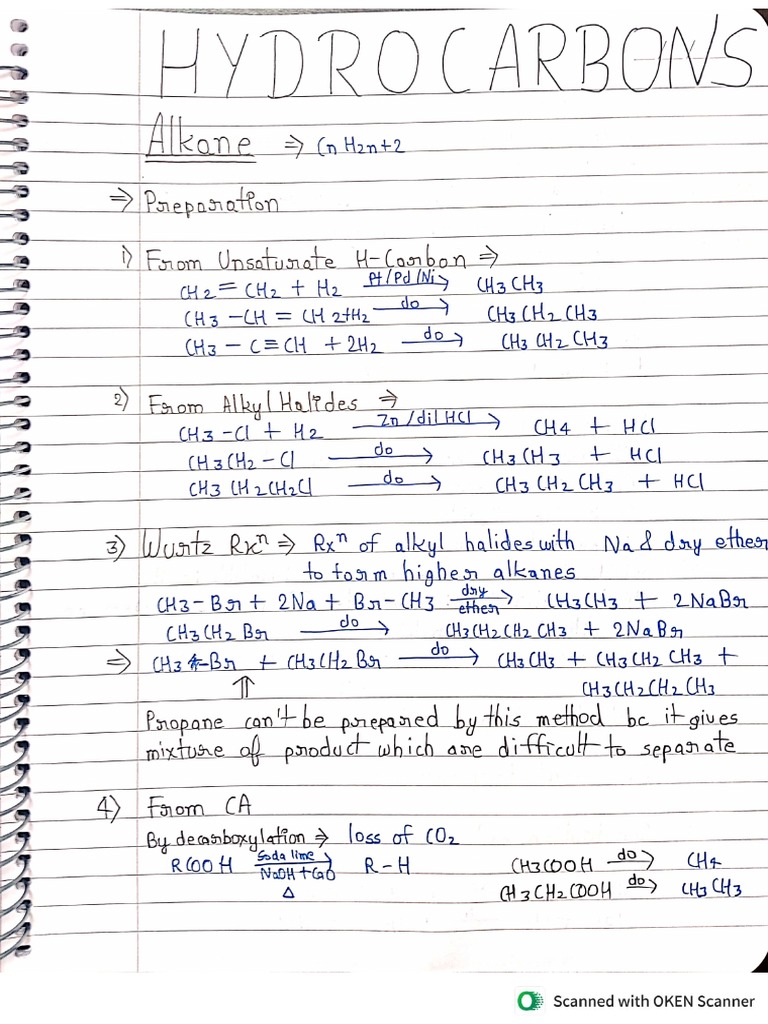 HYDROCARBONS
Alkane ⇒ CnH2n+2
⇒ Preparation
1) From Unsaturate H-Carbon ⇒
CH2 = CH2 + H2 Pt/Pd/Ni→ CH3CH3
CH3 - CH = CH2 + H2 do→ CH3CH2CH3
CH3 - C ≡ CH + 2H2 do→ CH3CH2CH3
2) From Alkyl Halides ⇒
CH3 - Cl + H2 Zn/dil HCl→ CH4 + HCl
CH3CH2 - Cl do→ CH3CH3 + HCl
CH3CH2CH2Cl do→ CH3CH2CH3 + HCl
3) Wurtz Rxⁿ ⇒ Rxⁿ of alkyl halides with Na & dry ether
to form higher alkanes
CH3 - Br + 2Na + Br - CH3 dry ether→ CH3CH3 + 2NaBr
CH3CH2Br do→ CH3CH2CH2CH3 + 2NaBr
⇒ CH3 - Br + CH3CH2Br do→ CH3CH3 + CH3CH2CH3 +
⇑ CH3CH2CH2CH3
Propane can't be prepared by this method bc it gives
mixture of product which are difficult to separate
4) From CA
By decarboxylation ⇒ loss of CO2
RCOOH Soda lime→ NaOH + CaO Δ R - H CH3COOH do→ CH4
CH3CH2COOH do→ CH3CH3
Scanned with OKEN Scanner